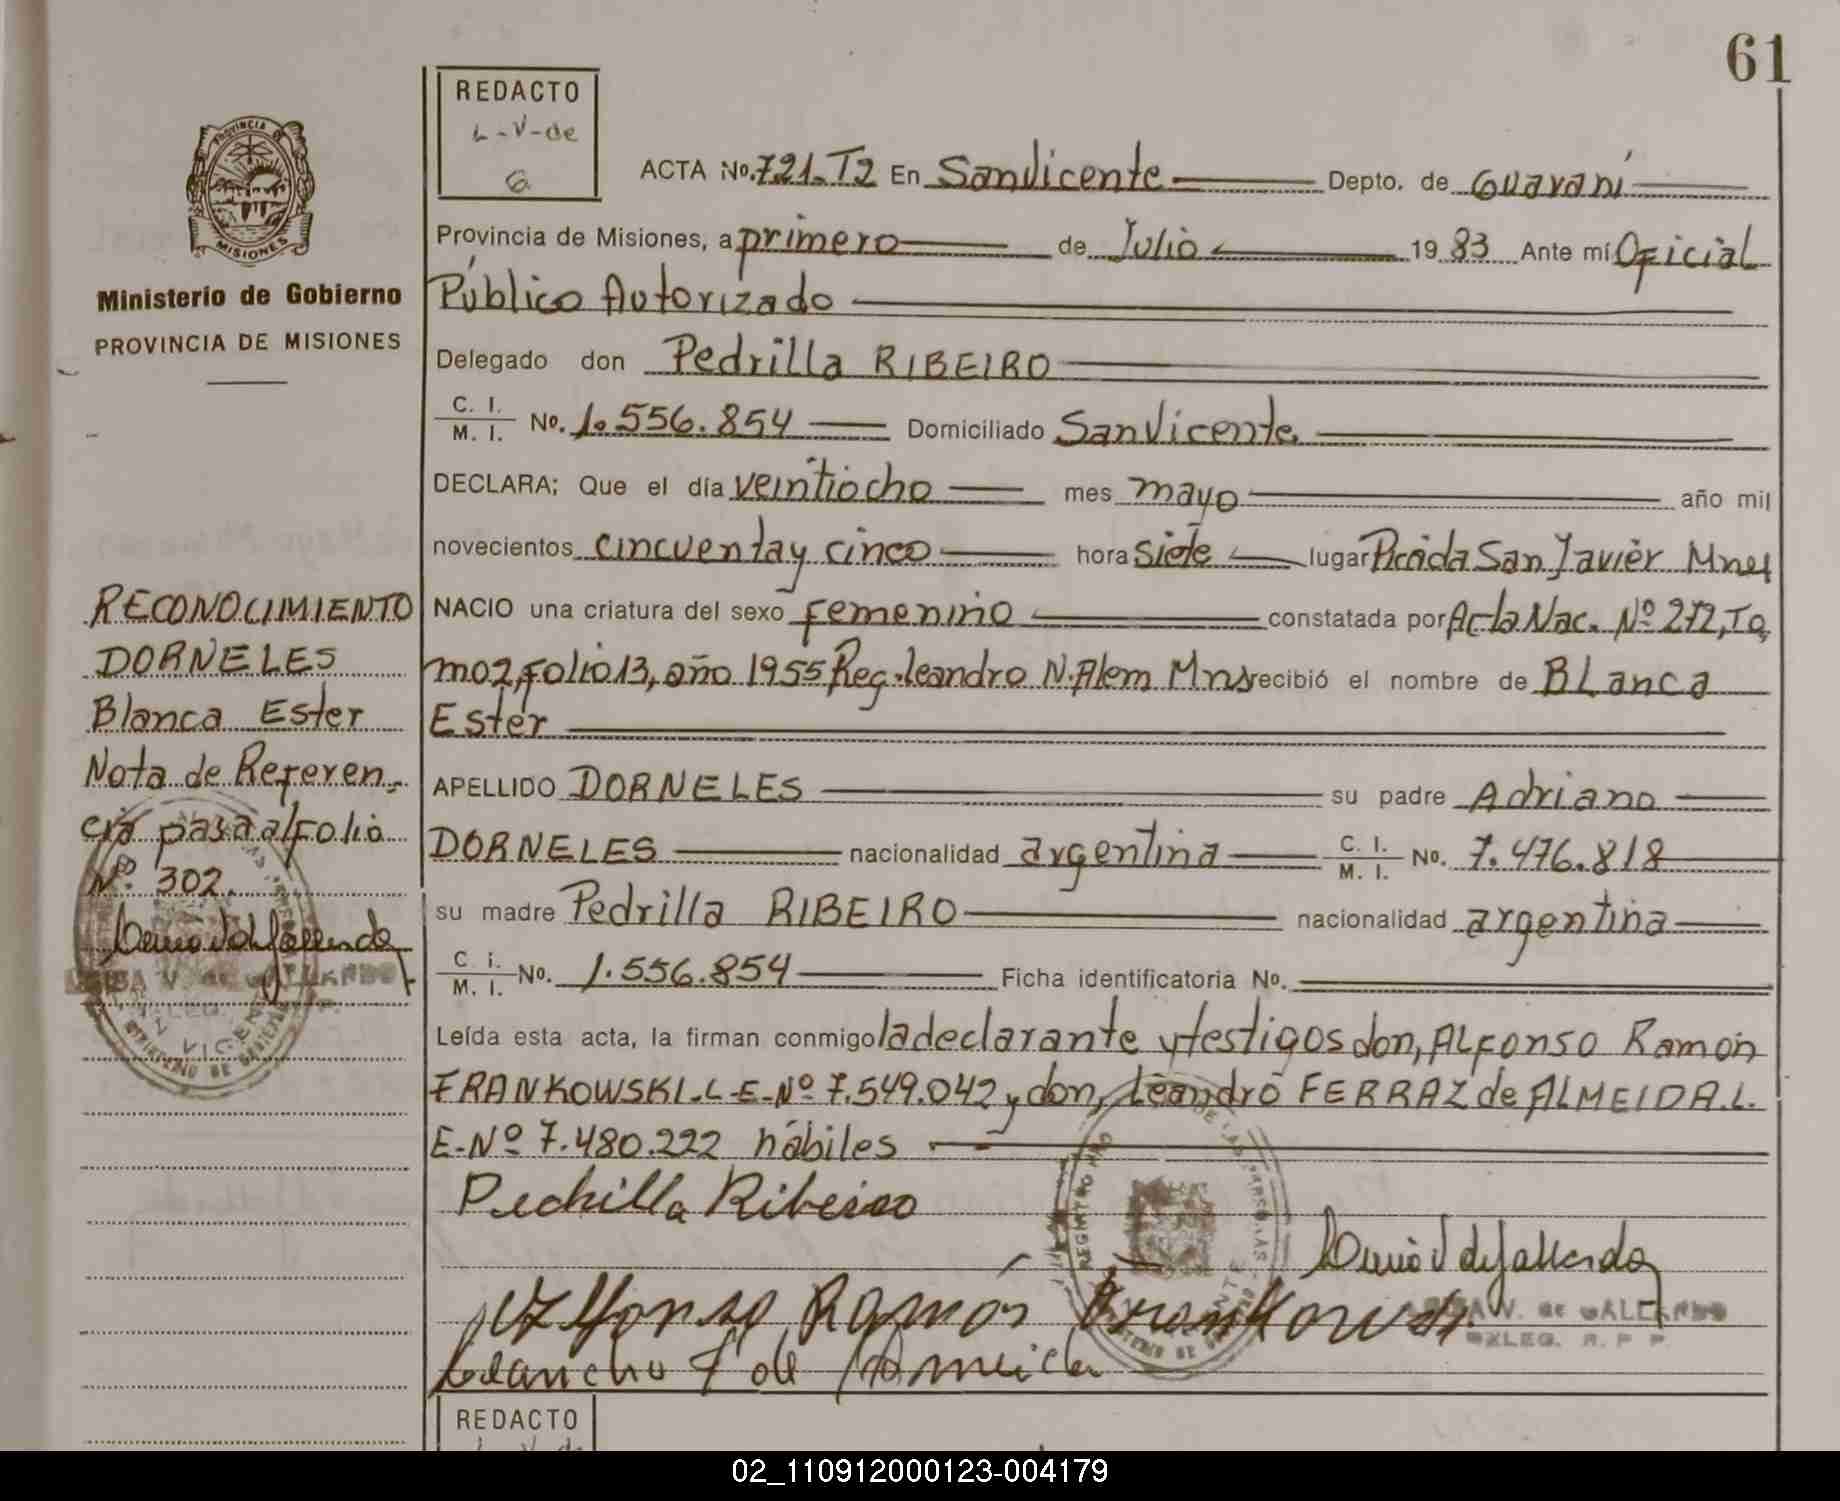 61
REDACTO
L-V-de
G
ACTA No. 721-T2 En San Vicente Depto. de Guaraní
Provincia de Misiones, a primero de Julio 19 83 Ante mí Oficial
Público Autorizado
Delegado don Pedrilla RIBEIRO
C. I.
M. I. No. 1.556.854 Domiciliado San Vicente
DECLARA; Que el día veintiocho mes mayo año mil
novecientos cincuenta y cinco hora siete lugar Picada San Javier Mnes
NACIO una criatura del sexo femenino constatada por Acta Nac. Nº 272, To
mo 2, folio 13, año 1955 Reg. leandro N. Alem Mns recibió el nombre de BLanca
Ester
APELLIDO DORNELES su padre Adriano
DORNELES nacionalidad argentina C. I. M. I. No. 7.476.818
su madre Pedrilla RIBEIRO nacionalidad argentina
C. i.
M. I. No. 1.556.854 Ficha identificatoria No.
Leída esta acta, la firman conmigo la declarante y testigos don, ALFONSO Ramón
FRANKOWSKI.-L-E-Nº 7.549.042 y don, Leandro FERRAZ de ALMEIDA.L.
E-Nº 7.480.222 hábiles
Pedrilla Ribeiro
Alfonso Ramón Frankowski
V. de GALLARDO
DELEG. R. P. P.
PROVINCIA DE
MISIONES
Ministerio de Gobierno
PROVINCIA DE MISIONES
RECONOCIMIENTO
DORNELES
Blanca Ester
Nota de Referen-
cia pasa al folio
Nº 302.
V. de GALLARDO
REDACTO
L-V-de
02_110912000123-004179